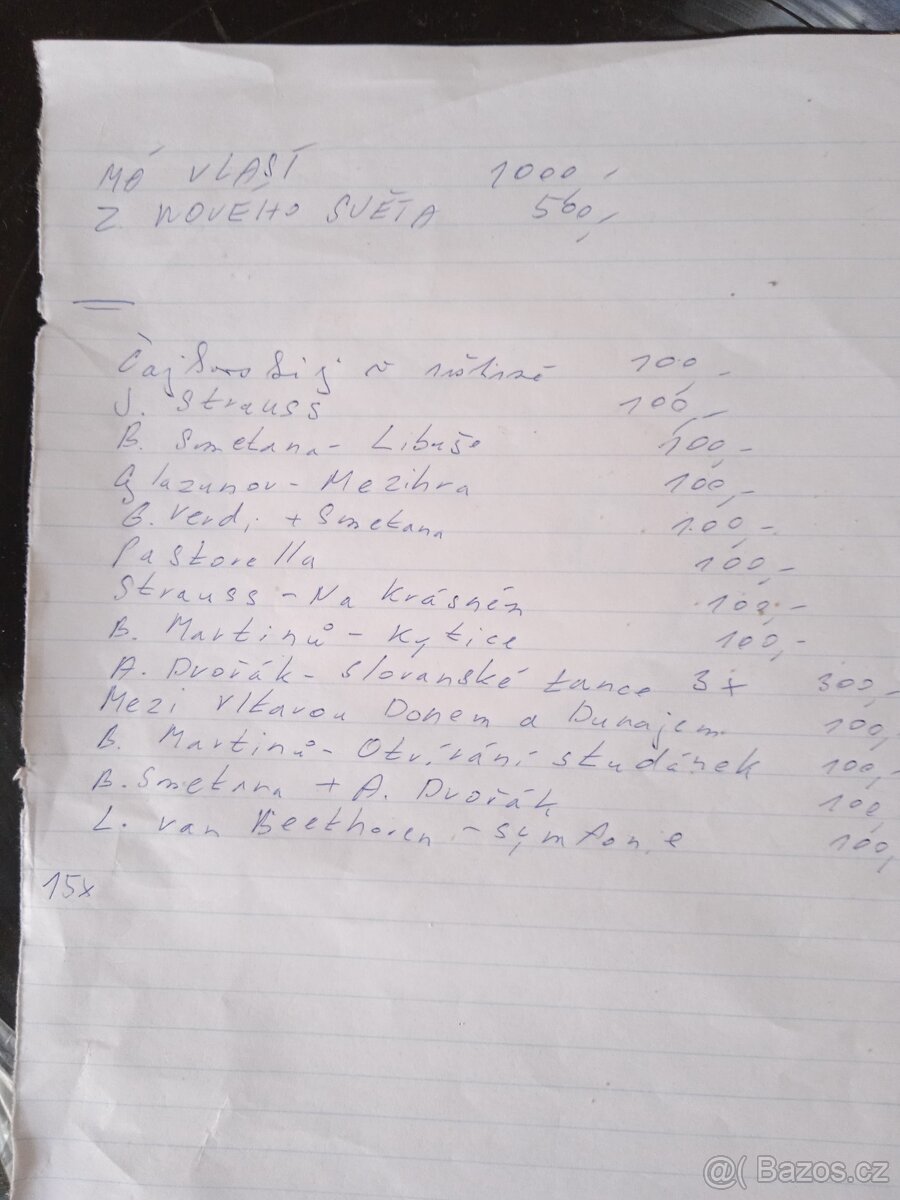 MÁ VLAST 1000,-
Z NOVÉHO SVĚTA 500,-
Čajkovskij v 100,-
J. Strauss 100,-
B. Smetana - Libuše 100,-
Glazunov - Mezihra 100,-
G. Verdi + Smetana 100,-
Pastorella 100,-
Strauss - Na Krásném 100,-
B. Martinů - Kytice 100,-
A. Dvořák - Slovanské tance 3x 300,-
Mezi Vltavou Donem a Dunajem 100,-
B. Martinů - Otvírání studánek 100,-
B. Smetana + A. Dvořák 100,
L. van Beethoven - symfonie 100,-
15x
@( Bazos.cz